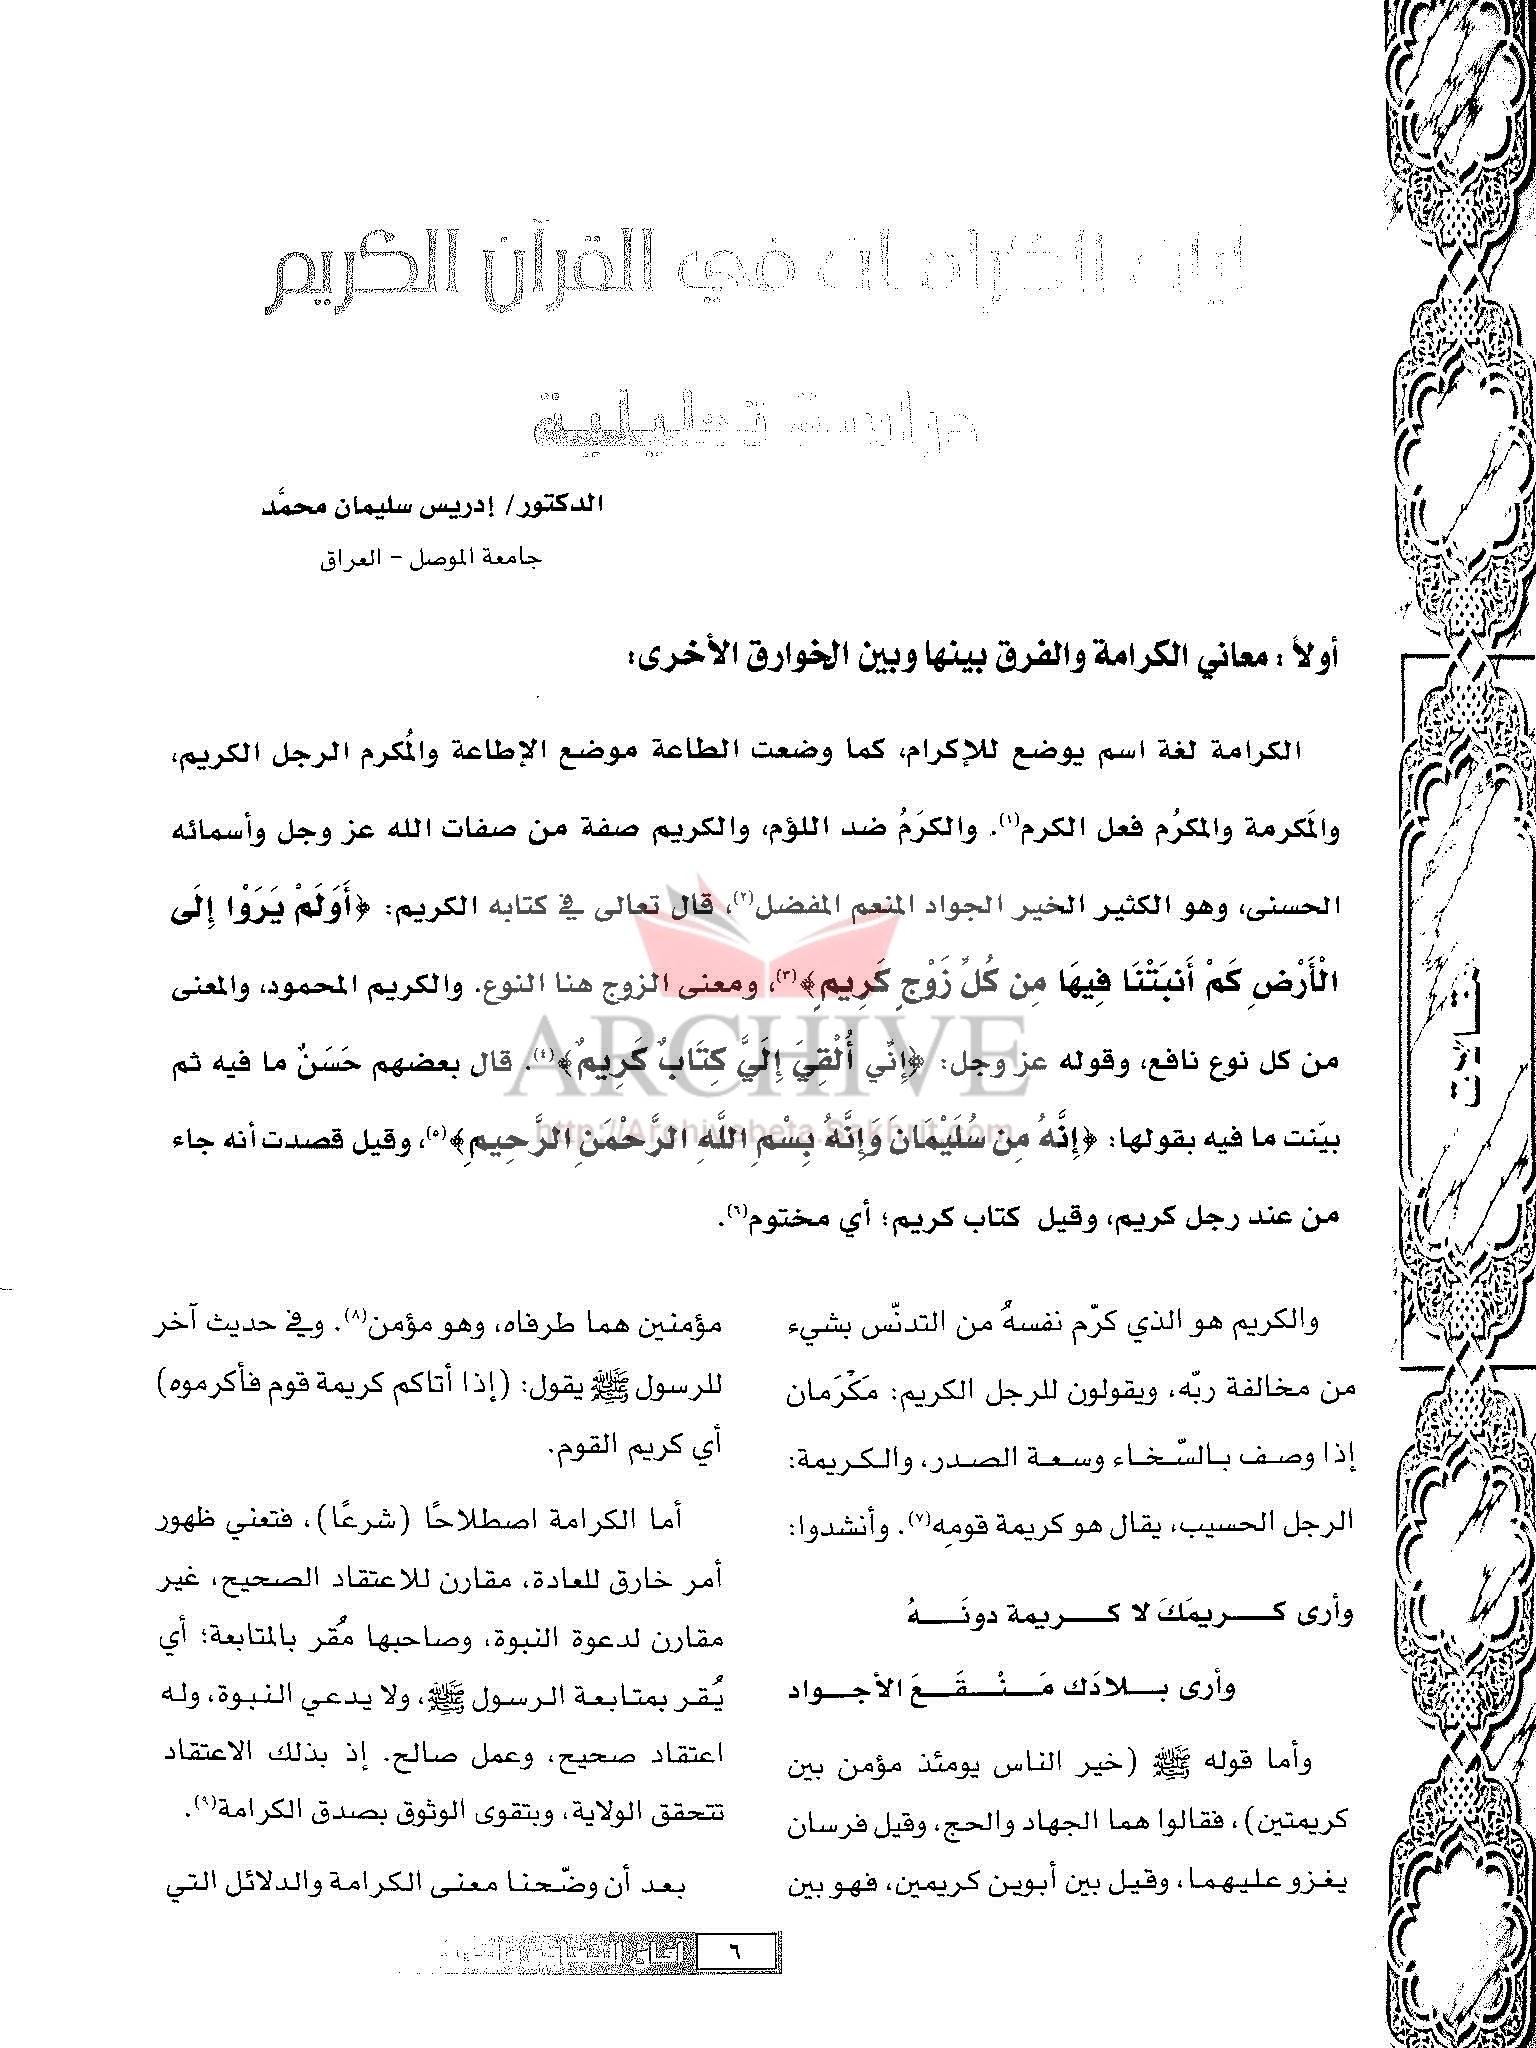 آيات الكرامات في القرآن الكريم
دراسة تحليلية
الدكتور/ إدريس سليمان محمَّد
جامعة الموصل - العراق
أولاً : معاني الكرامة والفرق بينها وبين الخوارق الأخرى:
الكرامة لغة اسم يوضع للإكرام، كما وضعت الطاعة موضع الإطاعة والمُكرم الرجل الكريم،
والمَكرمة والمكرُم فعل الكرم(١). والكرَمُ ضد اللؤم، والكريم صفة من صفات الله عز وجل وأسمائه
الحسنى، وهو الكثير الخير الجواد المنعم المفضل(٢)، قال تعالى في كتابه الكريم: ﴿أَوَلَمْ يَرَوْا إِلَى
الْأَرْضِ كَمْ أَنبَتْنَا فِيهَا مِن كُلِّ زَوْجٍ كَرِيمٍ﴾(٣)، ومعنى الزوج هنا النوع. والكريم المحمود، والمعنى
من كل نوع نافع، وقوله عز وجل: ﴿إِنِّي أُلْقِيَ إِلَيَّ كِتَابٌ كَرِيمٌ﴾(٤). قال بعضهم حَسَنٌ ما فيه ثم
بيّنت ما فيه بقولها: ﴿إِنَّهُ مِن سُلَيْمَانَ وَإِنَّهُ بِسْمِ اللَّهِ الرَّحْمَنِ الرَّحِيمِ﴾(٥)، وقيل قصدت أنه جاء
من عند رجل كريم، وقيل كتاب كريم؛ أي مختوم(٦).
والكريم هو الذي كرّم نفسهُ من التدنّس بشيء
من مخالفة ربّه، ويقولون للرجل الكريم: مَكْرَمان
إذا وصف بالسّخاء وسعة الصدر، والكريمة:
الرجل الحسيب، يقال هو كريمة قومِه(٧). وأنشدوا:
وأرى كريمَكَ لا كريمة دونَهُ
وأرى بلادَك مَنْقَعَ الأجواد
وأما قوله ﷺ (خير الناس يومئذ مؤمن بين
كريمتين)، فقالوا هما الجهاد والحج، وقيل فرسان
يغزو عليهما، وقيل بين أبوين كريمين، فهو بين
مؤمنين هما طرفاه، وهو مؤمن(٨). وفي حديث آخر
للرسول ﷺ يقول: (إذا أتاكم كريمة قوم فأكرموه)
أي كريم القوم.
أما الكرامة اصطلاحًا (شرعًا)، فتعني ظهور
أمر خارق للعادة، مقارن للاعتقاد الصحيح، غير
مقارن لدعوة النبوة، وصاحبها مُقر بالمتابعة؛ أي
يُقر بمتابعة الرسول ﷺ، ولا يدعي النبوة، وله
اعتقاد صحيح، وعمل صالح. إذ بذلك الاعتقاد
تتحقق الولاية، وبتقوى الوثوق بصدق الكرامة(٩).
بعد أن وضّحنا معنى الكرامة والدلائل التي
مقالات
ARCHIVE
http://Archivebeta.Sakhrit.com
٦